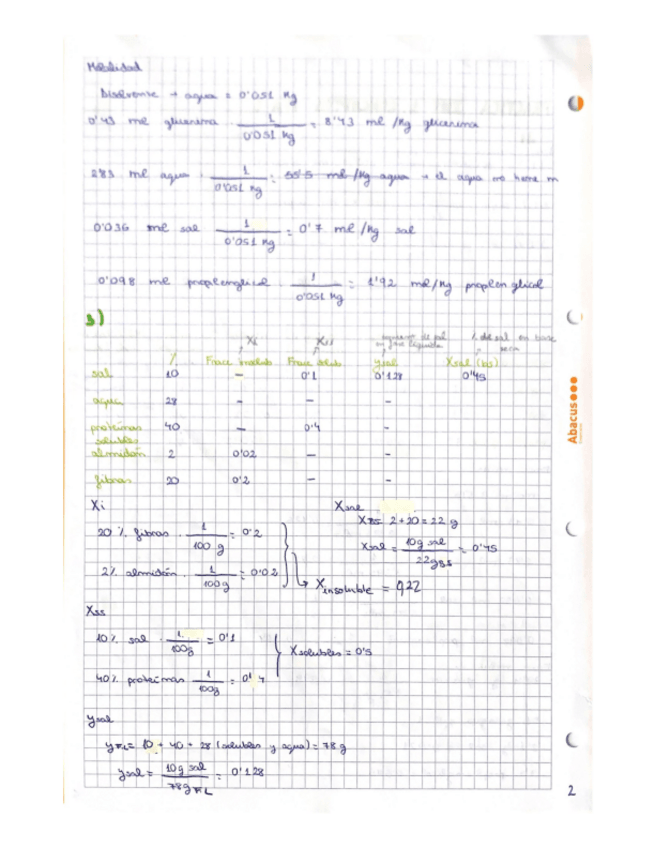 Molalidad
Disolvente → agua = 0'051 Kg
0'43 mol glicerina · 1 / 0'051 Kg = 8'43 mol/Kg glicerina
2'83 mol agua · 1 / 0'051 Kg = 55'5 mol/Kg agua → el agua no tiene m
0'036 mol sal · 1 / 0'051 Kg = 0'7 mol/Kg sal
0'098 mol propilenglicol · 1 / 0'051 Kg = 1'92 mol/Kg propilenglicol
3)
Xi Xss % de sal en base seca
% Fracc insolub Fracc solub ysal Xsal (bs)
sal 10 – 0'1 0'128 0'45
agua 28 – – –
proteínas solubles 40 – 0'4 –
almidón 2 0'02 – –
fibras 20 0'2 – –
Xi
20 % fibras · 1 / 100 g = 0'2
2% almidón · 1 / 100g = 0'02
Xinsoluble = 0,22
Xsal
2 + 20 = 22 g
Xsal = 10g sal / 22gss = 0'45
Xss
10% sal · 1 / 100g = 0'1
40% proteínas · 1 / 100g = 0'4
Xsolubles = 0'5
ysal
yFL = 10 + 40 + 28 (solubles y agua) = 78 g
ysal = 10g sal / 78g FL = 0'128
Abacus
2